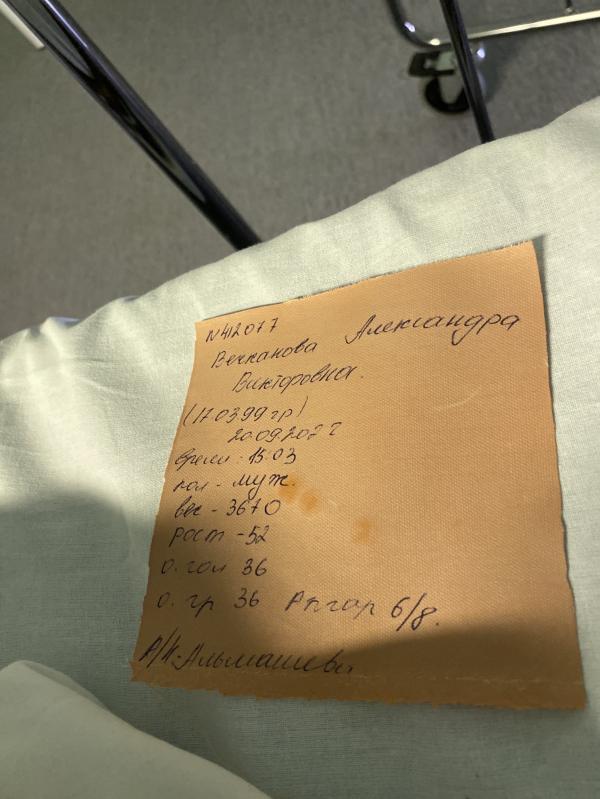 N412077
Вечканова Александра
Викторовна.
(17.03.99 гр)
20.09.2022
время - 15:03
пол - муж.
вес - 3670
рост - 52
о. гол 36
о. гр 36 Апгар 6/8.